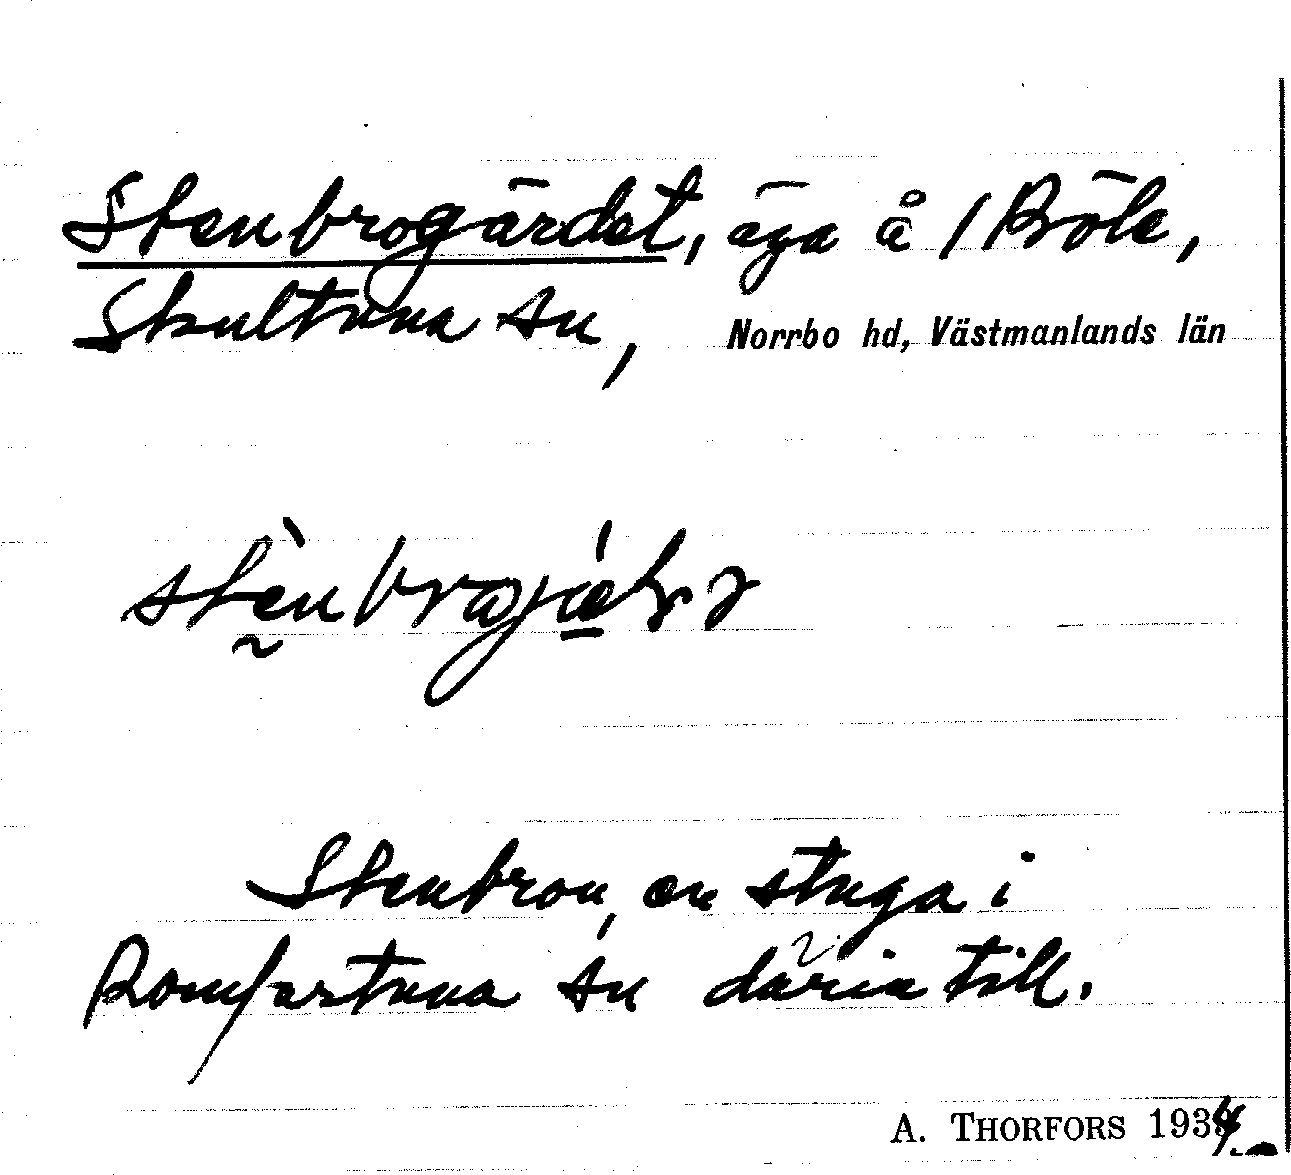 Stenbrogärdet, äga å 1 Böle,
Skultuna sn, Norrbo hd, Västmanlands län
Stenbron, en stuga i
Romfartuna sn därintill.
A. THORFORS 1934.